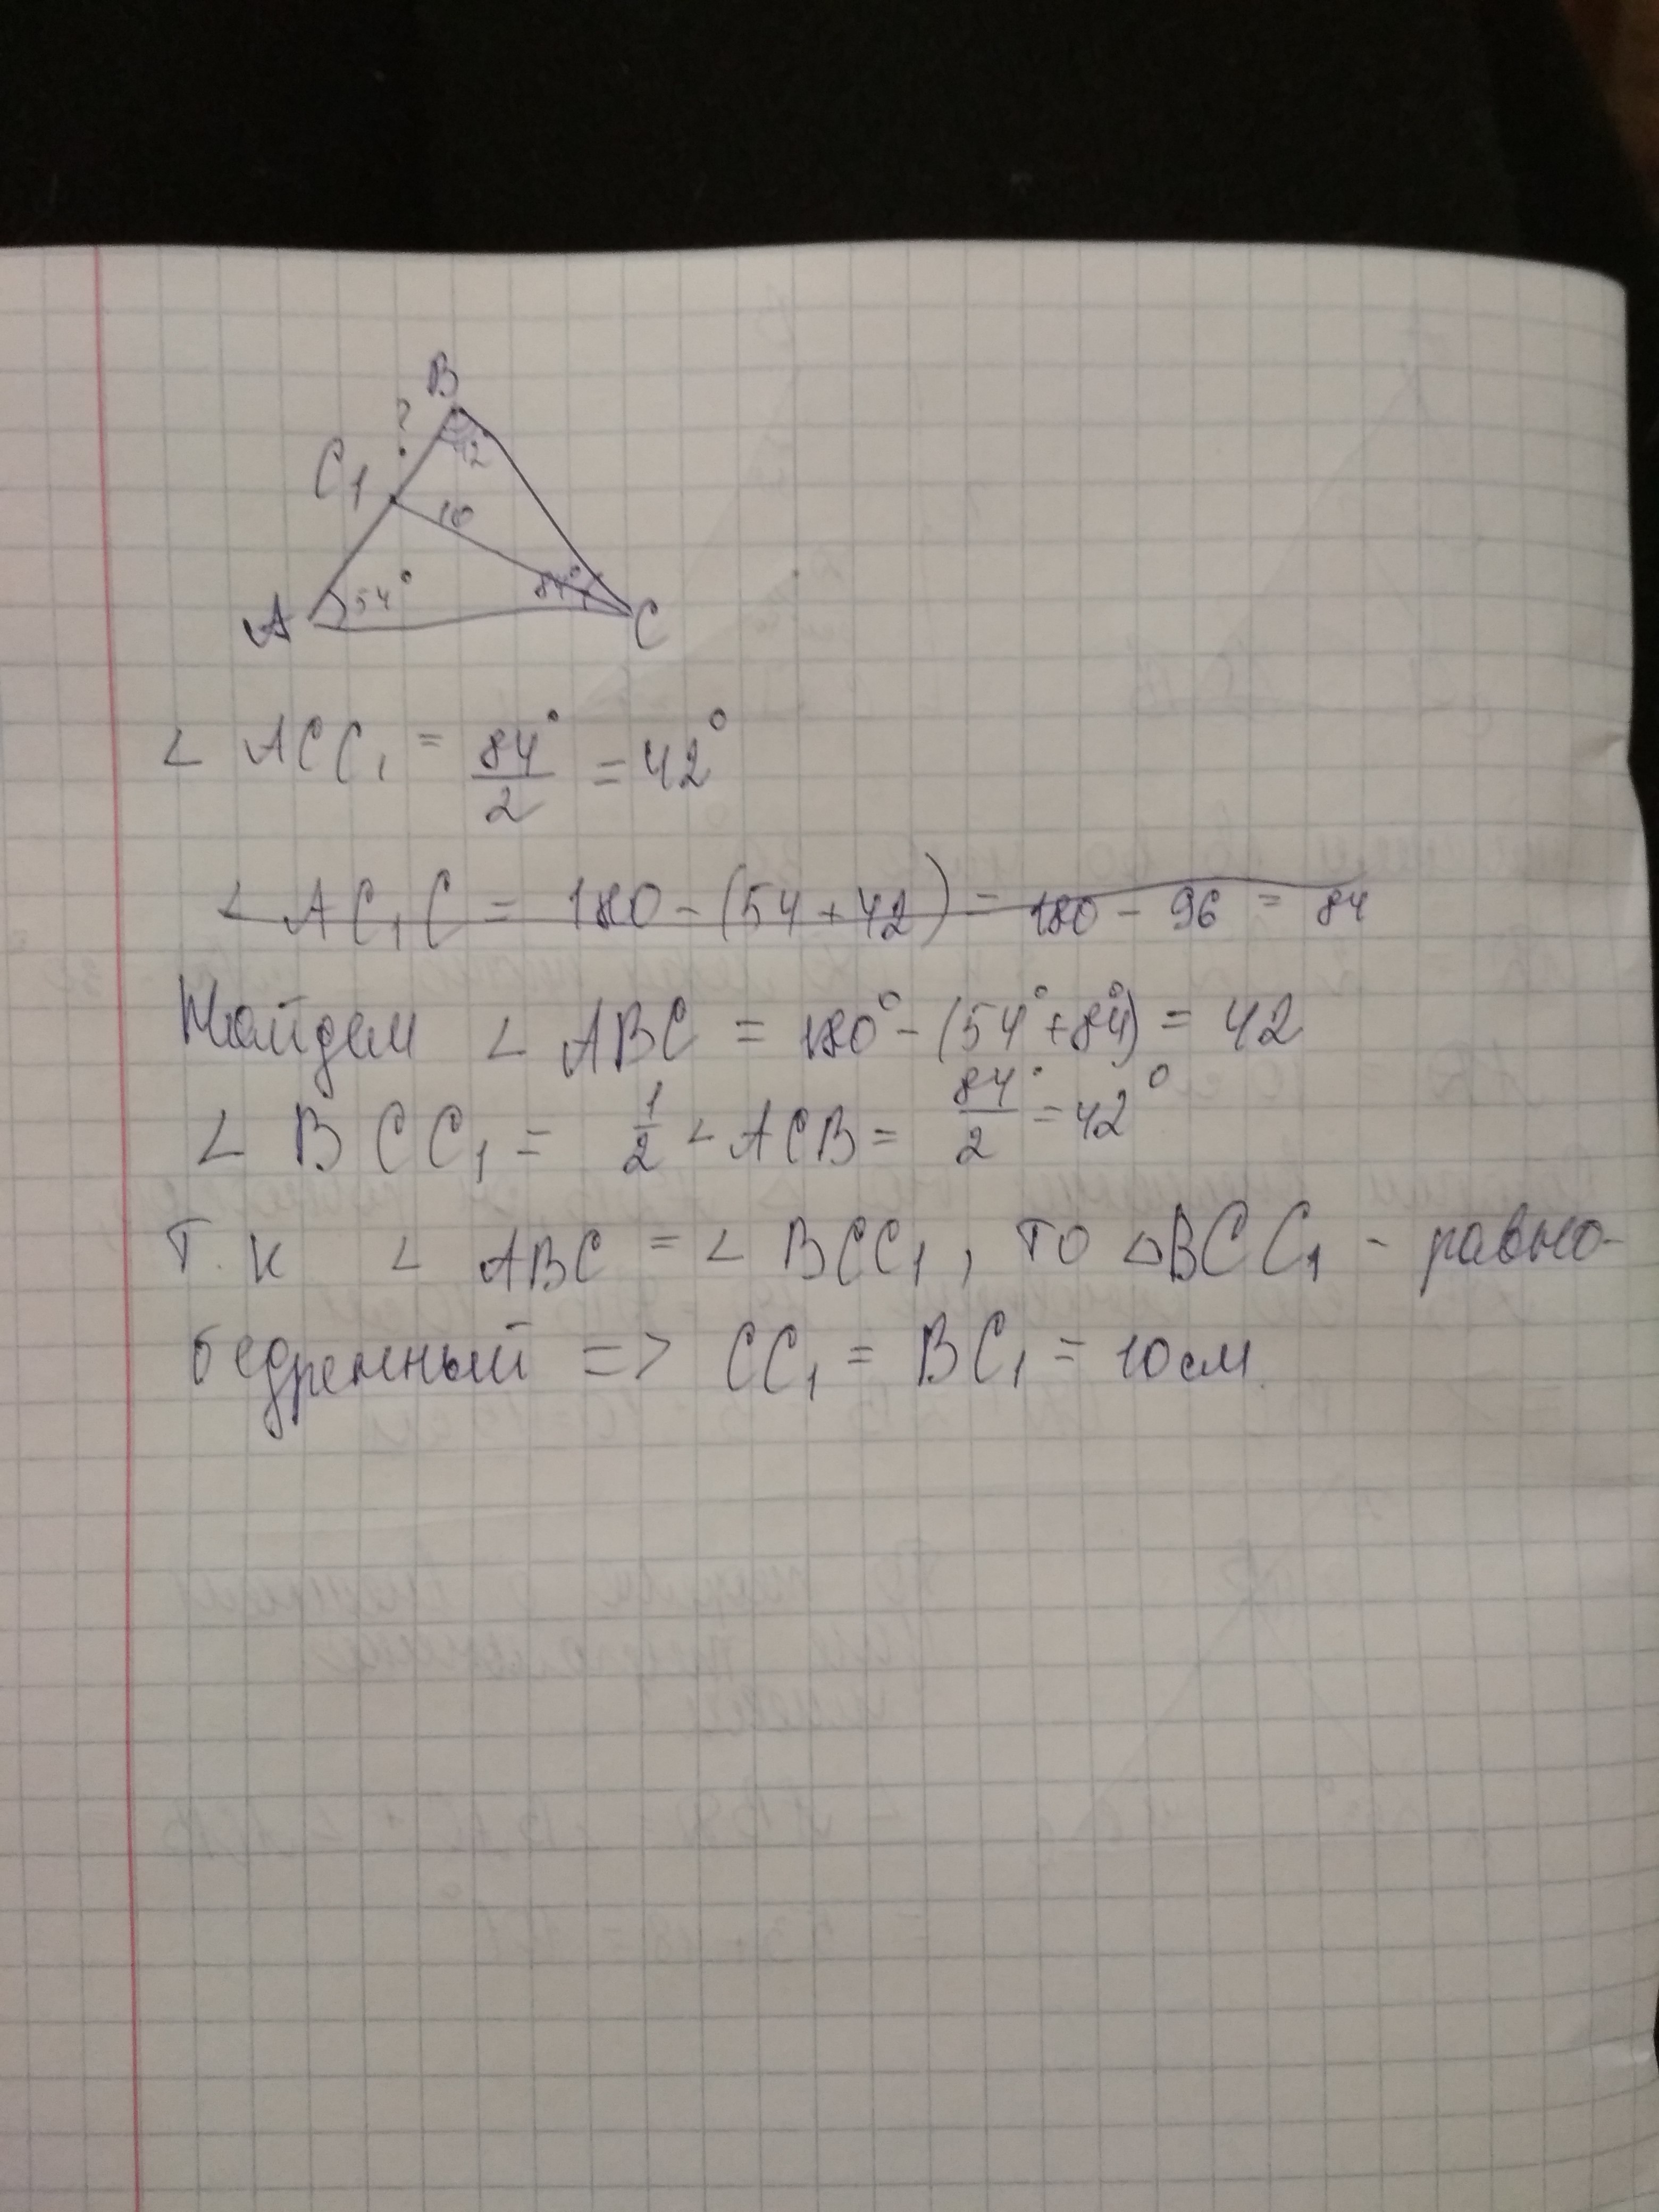 B
?
C₁
42
10
A
54°
84°
C
∠ ACC₁ = 84°/2 = 42°
∠ AC₁C = 180 - (54 + 42) = 180 - 96 = 84
Найдем ∠ ABC = 180° - (54° + 84°) = 42
∠ BCC₁ = 1/2 ∠ ACB = 84°/2 = 42°
т.к ∠ ABC = ∠ BCC₁, то △BCC₁ - равно-
бедренный => CC₁ = BC₁ = 10см.